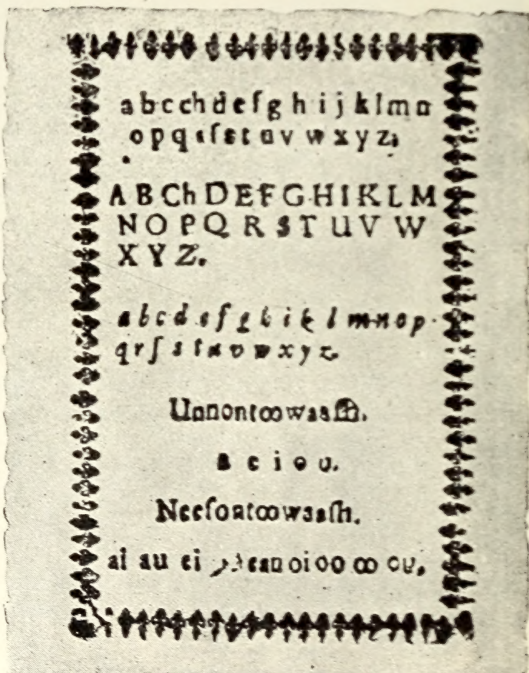 a b c ch d e f g h i j k l m n
o p q r ſ s t u v w x y z,
A B Ch D E F G H I K L M
N O P Q R S T U V W
X Y Z.
a b c d e f g h i k l m n o p
q r ſ s t u v w x y z.
Unnontꝏwaaſh.
a e i o u.
Neeſontꝏwaaſh.
ai au ei eau oi oo ꝏ ou.